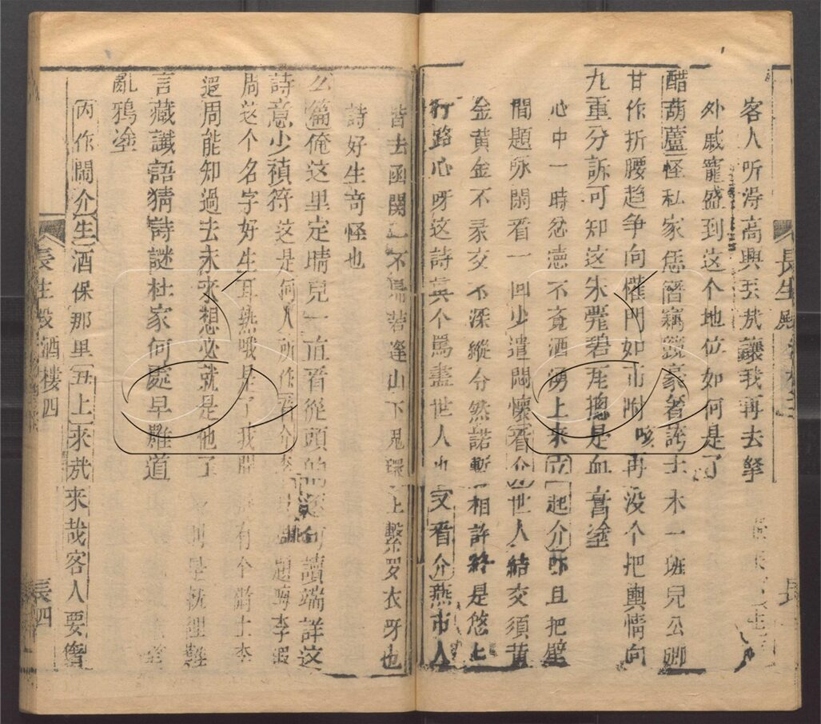 客人听得高興丑我讓我再去拏
外戚寵盛到这个地位如何是了
醋葫蘆怪私家恁僭竊競豪奢誇土木一班兒公卿
甘作折腰趋争向權門如市附咳再没个把輿情向
九重分訴可知这朱甍碧瓦總是血膏塗
心中一時忿懣不覺酒湧上来起介昨且把壁
間題咏閑看一回少遣悶懷看介世人結交須黄
金黄金不多交不深縱令然諾暫相許終是悠上
行路心呀这詩真个罵盡世人也又看介燕市人
皆去函関一不歸若逢山下鬼環上繫羅衣呀也
詩好生奇怪也
么篇俺这里定晴兒一直看從頭向讀端詳这
詩意少禎符这是何人所作看介李遐周題哦李遐
周这个名字好生耳熟哦是了我聞有个術士李
遐周能知過去未来想必就是他了
言藏讖語猜詩謎杜家何處早難道
亂鴉塗
内作閙介生酒保那里丑上来我来哉客人要啥
長生殿
長生殿酒樓四
長四